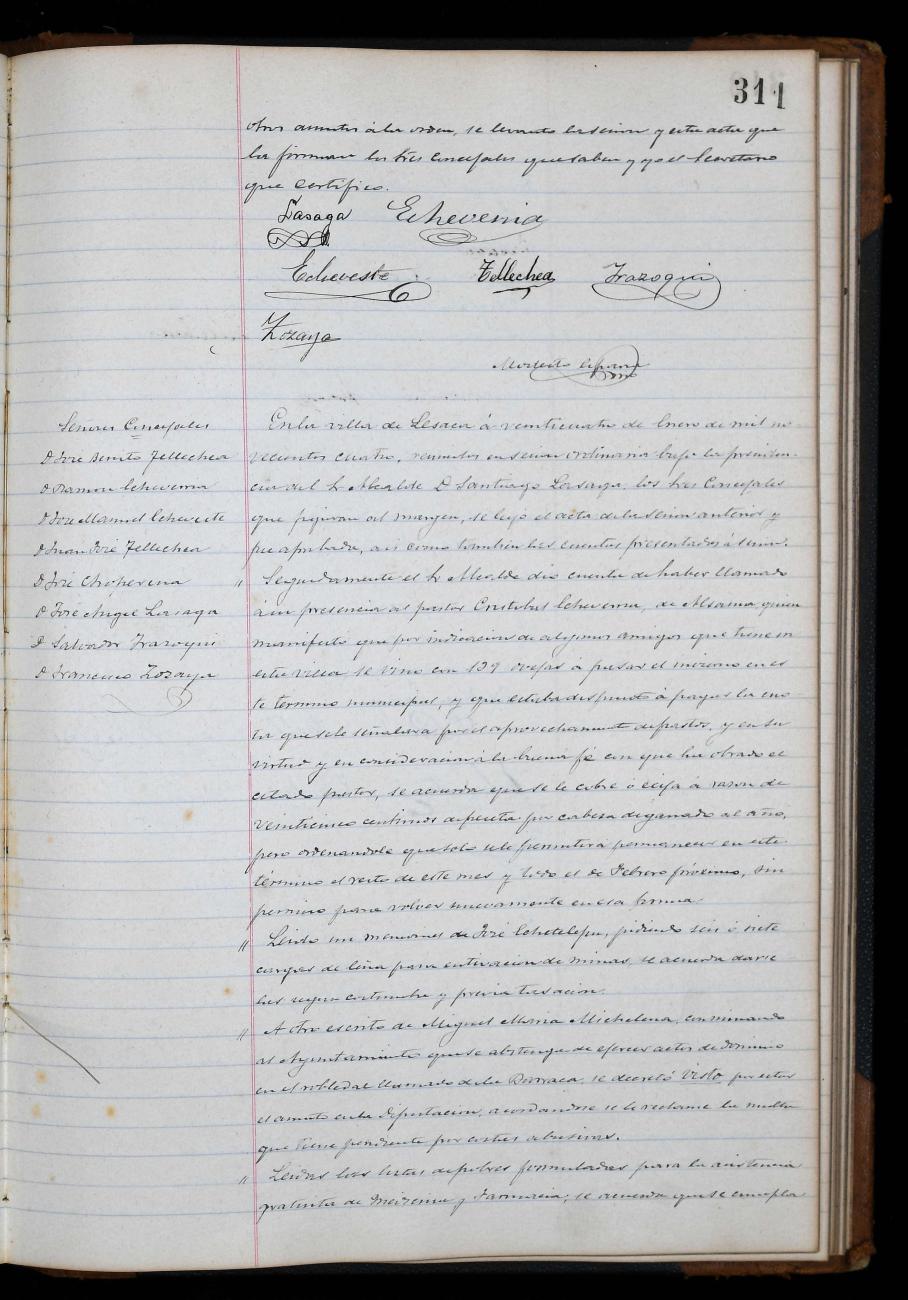 311
otros asuntos á la orden, se levantó la sesion y esta acta que
la firman los Sres Concejales que saben y yo el Secretario
que certifico.
Lasaga Echeverria
Echeveste Tellechea Irazoqui
Zozaya
Modesto
Señores Concejales
D José Benito Tellechea
D Ramon Echeverria
D José Manuel Echeveste
D Juan José Tellechea
D José Choperena
D José Angel Lasaga
D Salvador Irazoqui
D Francisco Zozaya
En la villa de Lesaca á veinticuatro de Enero de mil no-
vecientos cuatro, reunidos en sesion ordinaria bajo la presiden-
cia del Sr Alcalde D Santiago Lasaga, los Sres Concejales
que figuran al margen, se leyó el acta de la sesion anterior y
fue aprobada, asi como tambien las cuentas presentadas á sesion.
" Seguidamente el Sr Alcalde dio cuenta de haber llamado
á su presencia al pastor Cristobal Echeverria, de Alsasua quien
manifestó que por indicacion de algunos amigos que tiene en
esta villa se vino con 139 ovejas á pasar el invierno en es
te termino municipal, y que estaba dispuesto á pagar la cuo-
ta que se le señalara por el aprovechamiento de pastos, y en su
virtud y en consideracion á la buena fé con que ha obrado el
citado pastor, se acuerda que se le cobre ó exija á razon de
veinticinco centimos de peseta por cabeza de ganado al año,
pero ordenandole que solo se le permitirá permanecer en este
término el resto de este mes y todo el de Febrero próximo, sin
permiso para volver nuevamente en esa forma
" Leido un memorial de José pidiendo seis ó siete
cargas de leña para entivacion de minas, se acuerda darse
las segun costumbre y previa tasacion.
" A otro escrito de Miguel Maria Michelena, conminando
al Ayuntamiento que se abstenga de ejercer actos de dominio
en el robledal llamado de la Barraca, se decretó Visto, por estar
el asunto en la Diputacion, acordandose se le reclame la multa
que tiene pendiente por cortes abusivos.
" Leidas las listas de pobres formuladas para la asistencia
gratuita de Medicina y Farmacia, se acuerda que se cumpla